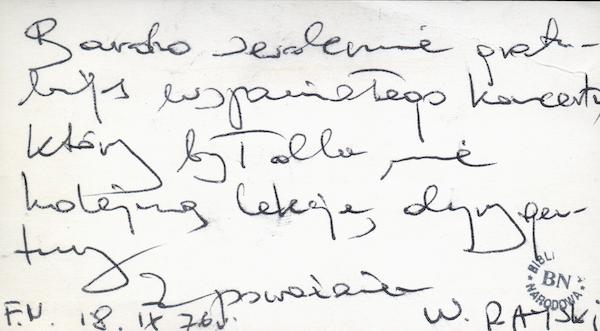 Bardzo serdecznie gratu-
luję wspaniałego koncertu
który był dla mnie
kolejną lekcją dyrygen-
tury
Z poważaniem
F.N. 18. IX 76 r. W. RAJSKI
BIBLI
NARODOWA
BN